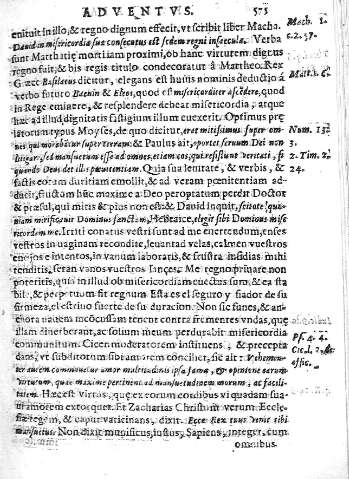 ADVENTVS. 573
enituit in illo, & regno dignum effecit, vt scribit liber Macha.
Dauid in misericordia sua consecutus est sedem regni in sæcula. Verba
sunt Matthatiæ morti iam proximi, ob hanc virtutem dignus
regno fuit, & bis regis titulo condecoratur à Mattheo. Rex
Græcè Basileus dicitur, elegans est huius nominis deductio à
verbo futuro & quod est misericorditer accedere, quod
in Rege eminere, & resplendere debeat misericordia, atque
hæc ad illud dignitatis fastigium illum euexerit. Optimus præ
latorum typus Moyses, de quo dicitur, erat mitissimus super om-
nes qui morabantur super terram: & Paulus ait, oportet seruum Dei non
litigare, sed mansuetum esse ad omnes, etiam eos, qui resistunt veritati, si
quando Deus det illis pœnitentiam. Quia sua leuitate, & verbis, &
factis eorum duritiam emollit, & ad veram pœnitentiam ad-
ducit, &
& præsul, qui mitis & pius non est: & Dauid inquit, scitote quo-
niam mirificauit Dominus sanctum, Hebraicè, elegit sibi Dominus mise
ricordem me. Irriti conatus vestri sunt ad me euertendum, enses
vestros in vaginam recondite, leuantad velas, calmen vuestros
enojos e intentos, in vanum laboratis, & frustra insidias mihi
tenditis, seran vanos vuestros lances. Me regno priuare non
poteritis, quia in illud ob misericordiam euectus sum, & ea sta
bile, & perpetuum fit regnum. Esta es el seguro y fiador de su
firmeza, el estriuo fuerte de su duracion. Non sic funes, & an-
chora nauem inconcussam tenent contra frementes vndas, quæ
illam dimouerant, ac solium meum perdurabit misericordia
communitum. Cicero moderatorem instituens, & præcepta
dans, vt subditorum sibi amorem conciliet, sic ait: Vehemen-
ter autem commouetur amor multitudinis ipsa fama, & opinione earum
virtutum, quæ maxime pertinent ad mansuetudinem morum, ac facili-
tatem. Hæc est virtus, quæ ex eorum cordibus vi quadam sua-
ui amorem extorquet. Et Zacharias Christum verum Eccle-
siæ regem, & caput vaticinans, dixit: Ecce Rex tuus venit tibi
mansuetus. Non dixit munificus, iustus, Sapiens, integer, cum
omnibus.
Mach. 1.
c. 2. 57.
Matth. 1. 6.
Num. 12.
3.
2. Tim. 2.
24.
Ps. 4. 4.
Cic. l. 2. de
offic.